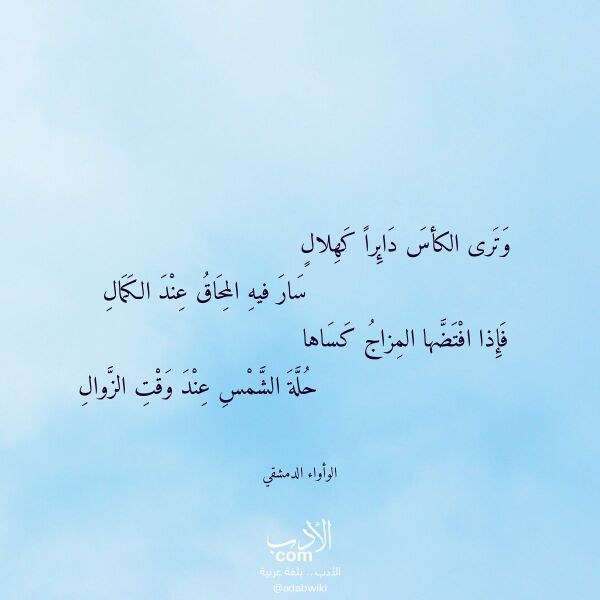 وَتَرى الكأسَ دَايِراً كَهِلالٍ
سَارَ فيهِ المِحَاقُ عِنْدَ الكَمَالِ
فَإِذا افْتَضَّها المِزاجُ كَسَاها
حُلَّةَ الشَّمْسِ عِنْدَ وَقْتِ الزَّوالِ
الوأواء الدمشقي
الأدب
com
الأدب .. بلغة عربية
@adabwiki